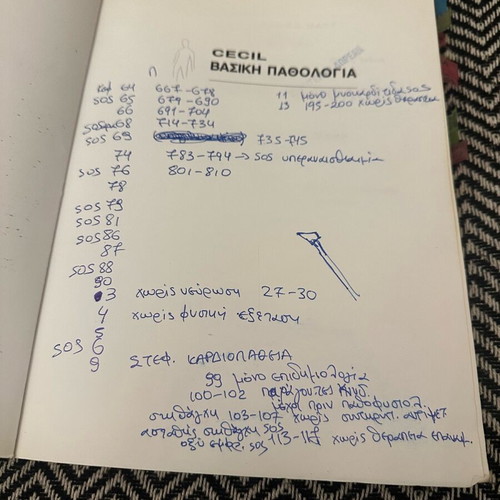 CECIL
ΒΑΣΙΚΗ ΠΑΘΟΛΟΓΙΑ
Π
κεφ 64 667-678 11 μόνο μυοκαρδίτιδα sos
sos 65 679-690 13 195-200 χωρίς θεραπεία
66 691-704
68 714-734
sos 69 735-745
74 783-794 → sos υπερευαισθησία
sos 76 801-810
78
sos 79
sos 81
sos 86
87
sos 88
90
3 χωρίς νεύρωση 27-30
4 χωρίς φυσική εξέταση
5
sos 6
9 ΣΤΕΦ. ΚΑΡΔΙΟΠΑΘΕΙΑ
99 μόνο επιδημιολογία
100-102 παράγοντες κινδ.
μέχρι πριν παθοφυσιολ.
στηθάγχη 103-107 χωρίς συντηρητ. αντιμετ.
ασταθής στηθάγχη sos
οξύ εμφρ. sos 113-117 χωρίς θεραπεία επιπλ.